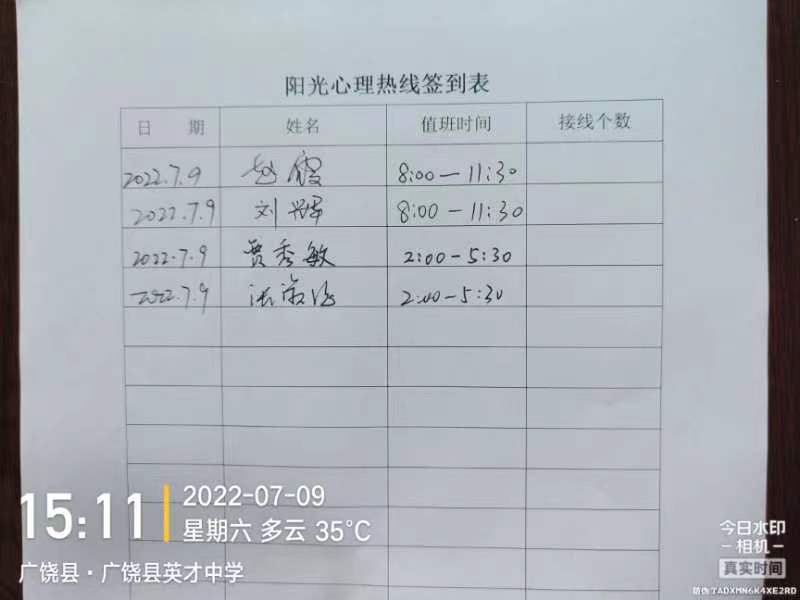 阳光心理热线签到表
日 期 姓名 值班时间 接线个数
2022.7.9 赵霞 8:00—11:30
2022.7.9 刘辉 8:00—11:30
2022.7.9 贾秀敏 2:00—5:30
2022.7.9 2:00—5:30
15:11
2022-07-09
星期六 多云 35°C
广饶县·广饶县英才中学
今日水印
-相机-
真实时间
防伪 TADXMN6K4XE2RD